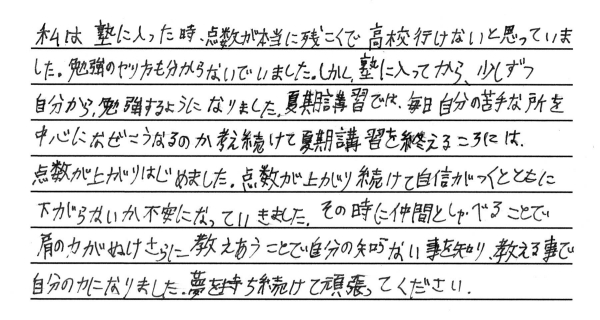 私は塾に入った時、点数が本当に残こくで高校行けないと思っていま
した。勉強のやり方も分からないでいました。しかし、塾に入ってから、少しずつ
自分から、勉強するようになりました。夏期講習では、毎日自分の苦手な所を
中心になぜこうなるのか考え続けて夏期講習を終えるころには、
点数が上がりはじめました。点数が上がり続けて自信がつくとともに
下がらないか不安になっていきました。その時に仲間としゃべることで
肩の力がぬけさらに教えあうことで自分の知らない事を知り、教える事で
自分の力になりました。夢を持ち続けて頑張ってください。